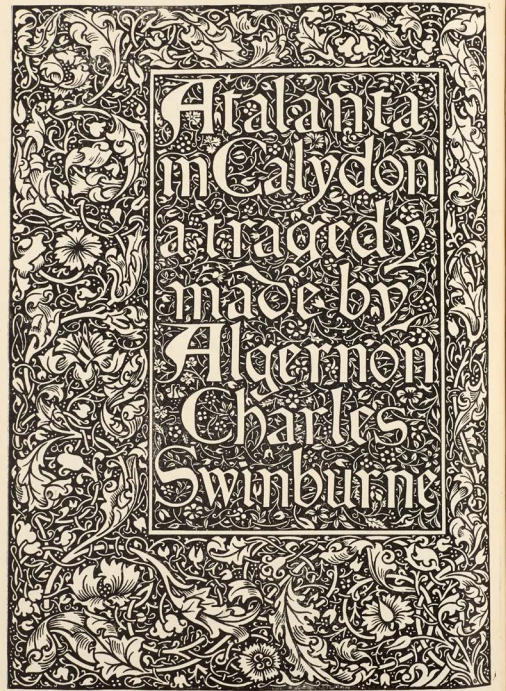 Atalanta
in Calydon
a tragedy
made by
Algernon
Charles
Swinburne